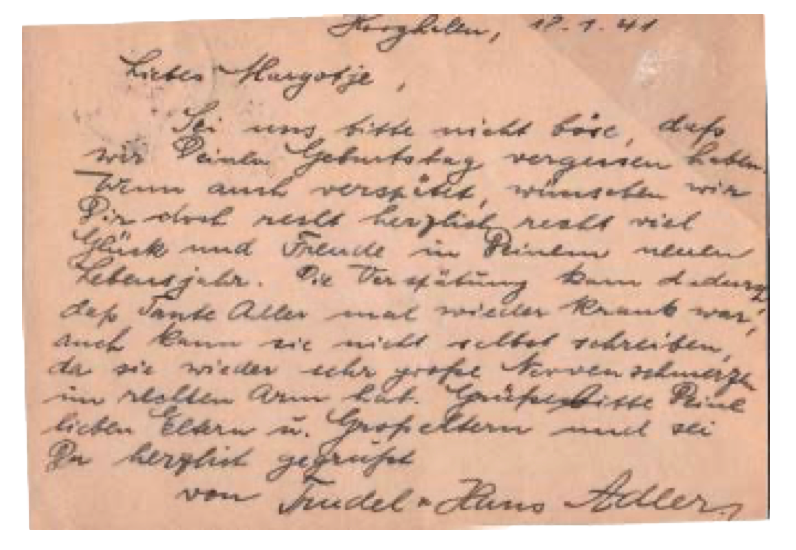 Hooghalen, 17.1.41
Liebes Margotje,
Sei uns bitte nicht böse, daß
wir Deinen Geburtstag vergessen haben.
Wenn auch verspätet, wünschen wir
Dir doch recht herzlich recht viel
Glück und Freude in Deinem neuen
Lebensjahr. Die Verspätung kam dadurch
daß Tante Adler mal wieder krank war,
auch kann sie nicht selbst schreiben,
da sie wieder sehr große Nervenschmerzen
im rechten Arm hat. Grüße bitte Deine
lieben Eltern u. Großeltern und sei
Du herzlich gegrüßt
von Trudel u Hans Adler